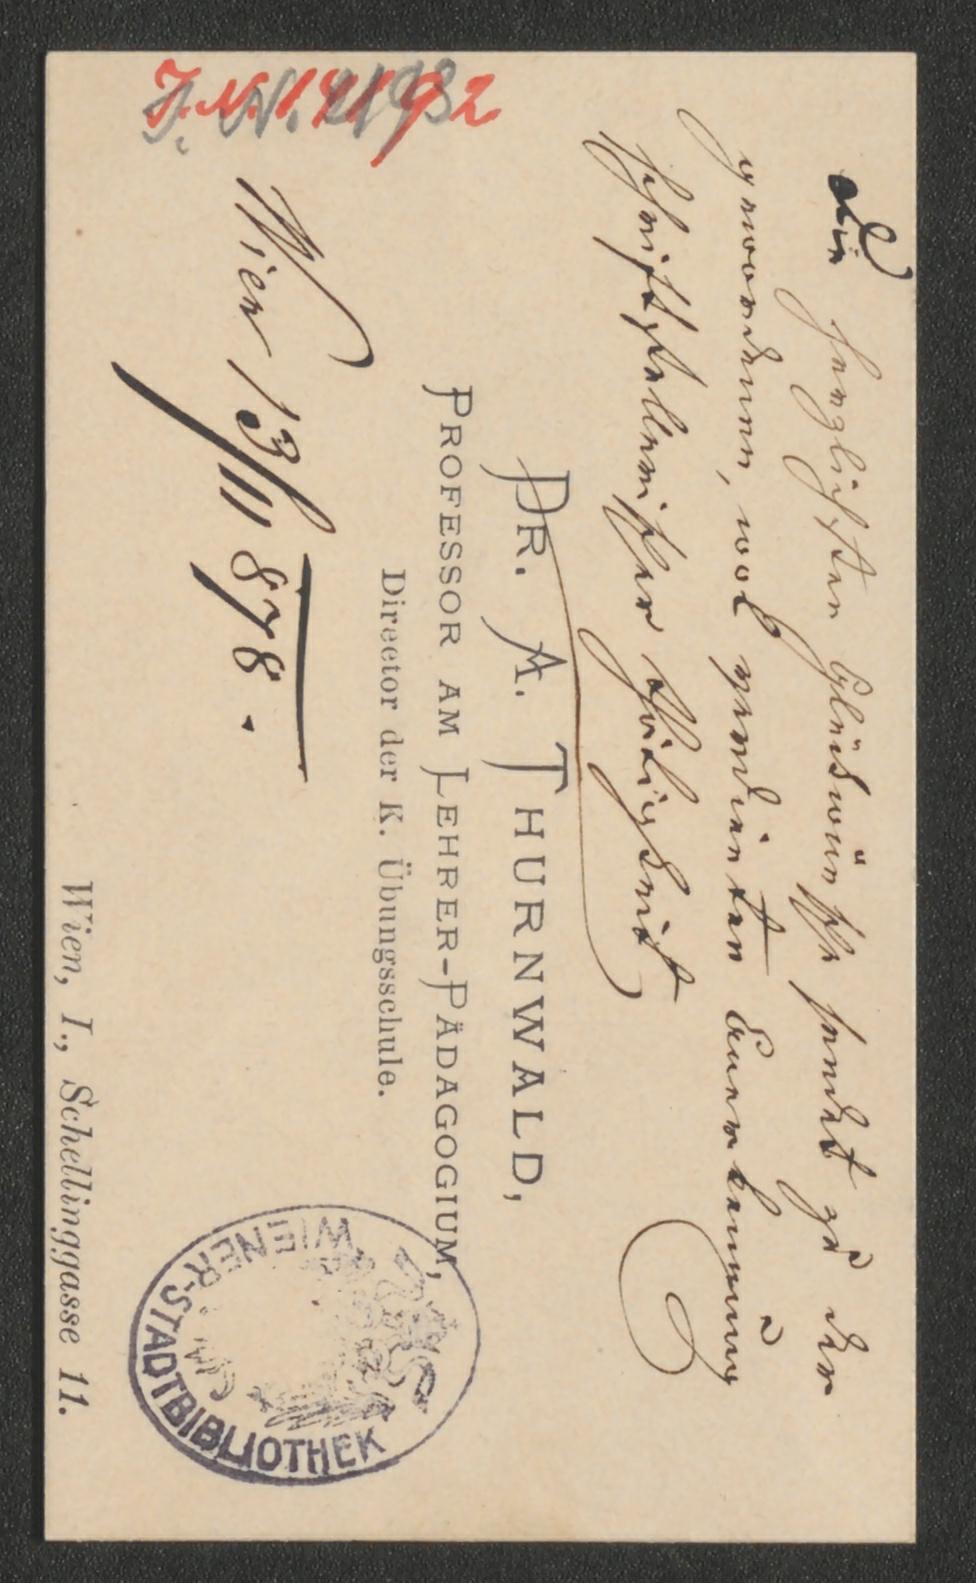 Die herzlichsten Glückwünsche sendet zu der
gewordenen, wol verdienten Anerkennung
schriftstellerischer Thätigkeit
DR. A. THURNWALD,
PROFESSOR AM LEHRER-PÄDAGOGIUM,
Director der K. Übungsschule.
Wien 13/III 878.
Wien, I., Schellinggasse 11.
WIENER-STADTBIBLIOTHEK